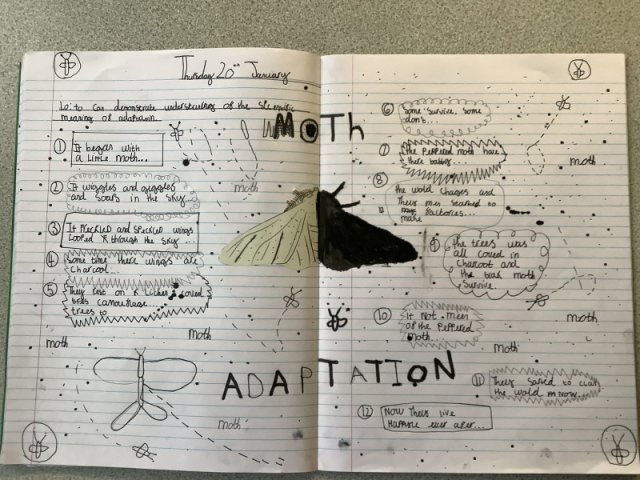 Thursday 20th January
Lo: to can demonstrate understanding of the scientific
meaning of adaptation.
MOTH
① It began with
a little moth...
② It wiggles and giggles
and soars in the sky...
③ It freckled and speckled wings
Looped through the sky...
④ Some time there wings are
Charcoal...
⑤ They live on
trees to
camouflage
moth
moth
moth
moth
ADAPTATION
⑥ Some survive some
don't...
⑦ The Peppered moth have
there babby...
moth
⑧ the world Changes and
make factories...
⑨ the trees was
all coverd in
Charcoal and
the blak moth
Survive.
moth
⑩ it Not men
of the Peppered
moth
moth
⑪ They started to clean
the world
⑫ Now they live
Happile ever after...